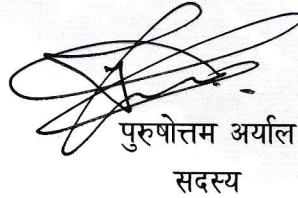 पुरुषोत्तम अर्याल
सदस्य